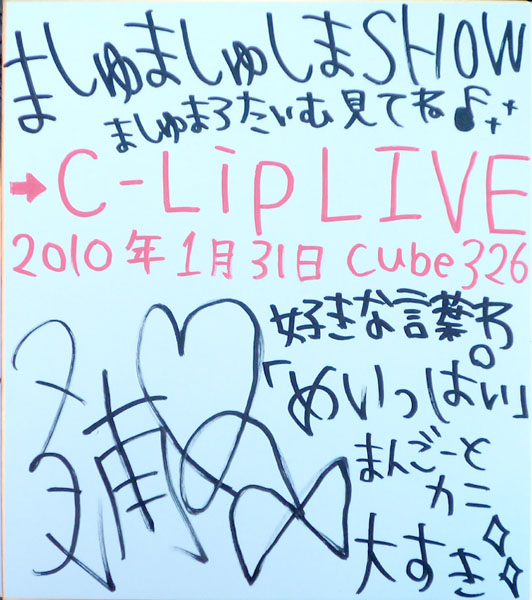 ましゅましゅしまSHOW
ましゅまろたいむ見てね♪
→C-Lip LIVE
2010年1月31日 Cube326
好きな言葉わ。
「めいっぱい」
まんごーと
カニ
大すき